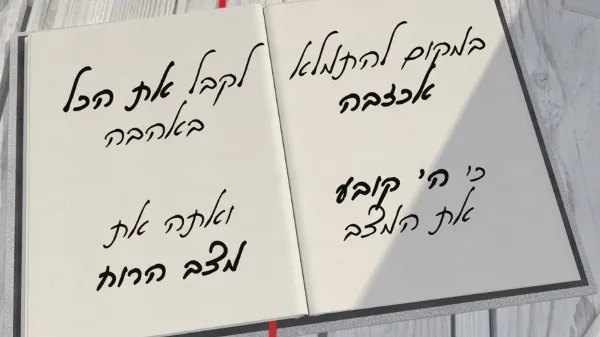 במקום להתמלא
אכזבה
כי ה' קובע
את המצב
לקבל את הכל
באהבה
ואתה את
מצב הרוח